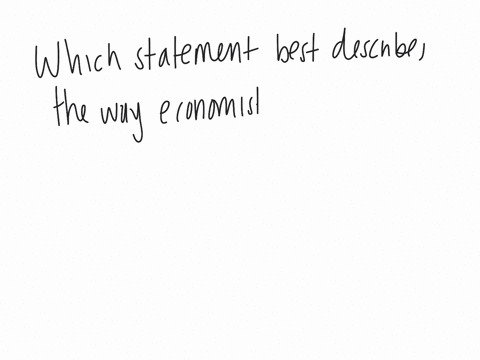 Which statement best describes
the way economist